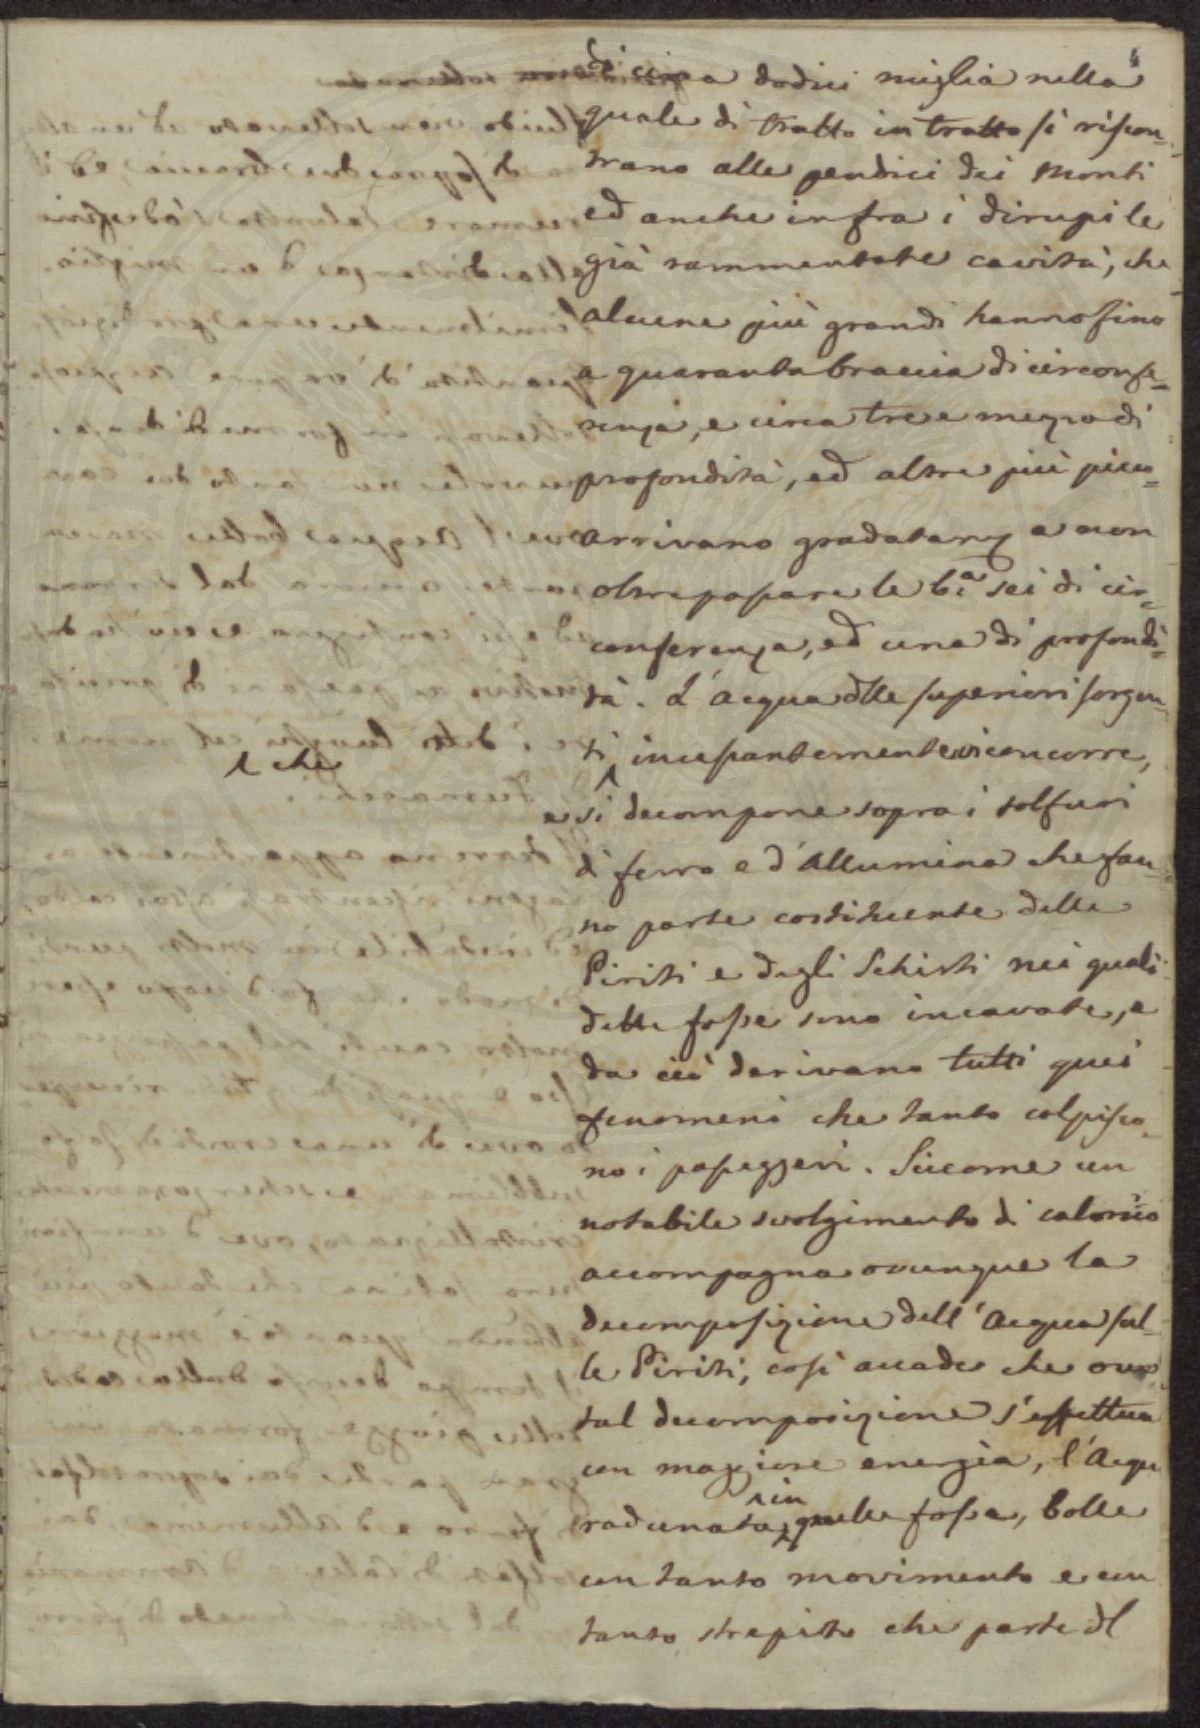 4
di circa dodici miglia nella
quale di tratto in tratto si riscon-
trano alle pendici dei Monti
ed anche infra i dirupi le
già rammentate cavità, che
alcune più grandi hanno fino
a quaranta braccia di circonfe-
renza, e circa tre e mezzo di
profondità, ed altre più picco-
arrivano gradatam a non
oltrepassare le bᵃ sei di cir-
conferenza, ed una di profondi-
tà. L'Acqua dlle superiori sorgen-
ti incessantemente vi concorre,
che
e si decompone sopra i solfuri
di ferro e d'Allumina che fan-
no parte costituente delle
Piriti e degli Schisti nei quali
dette fosse sono incavate, e
da ciò derivano tutti quei
fenomeni che tanto colpisco-
no i passeggeri. Siccome un
notabile svolgimento di calorico
accompagna ovunque la
decomposizione dell'Acqua sul-
le Piriti, così accade che ove
tal decomposizione s'effettua
con maggiore energia, l'Acqu
radunata in quelle fosse, bolle
con tanto movimento e con
tanto strepito che parte dl